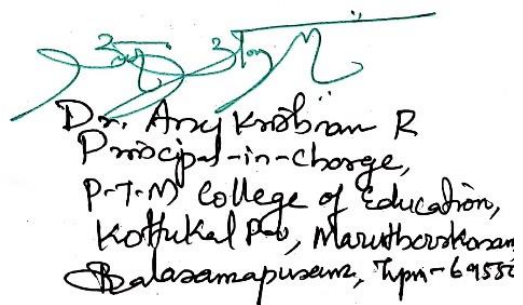 Dr. Anoj Krishnan R
Principal-in-charge,
P.T.M College of Education,
Kottukal P.O, Maruthoorkonam,
Balaramapuram, Tvpm-